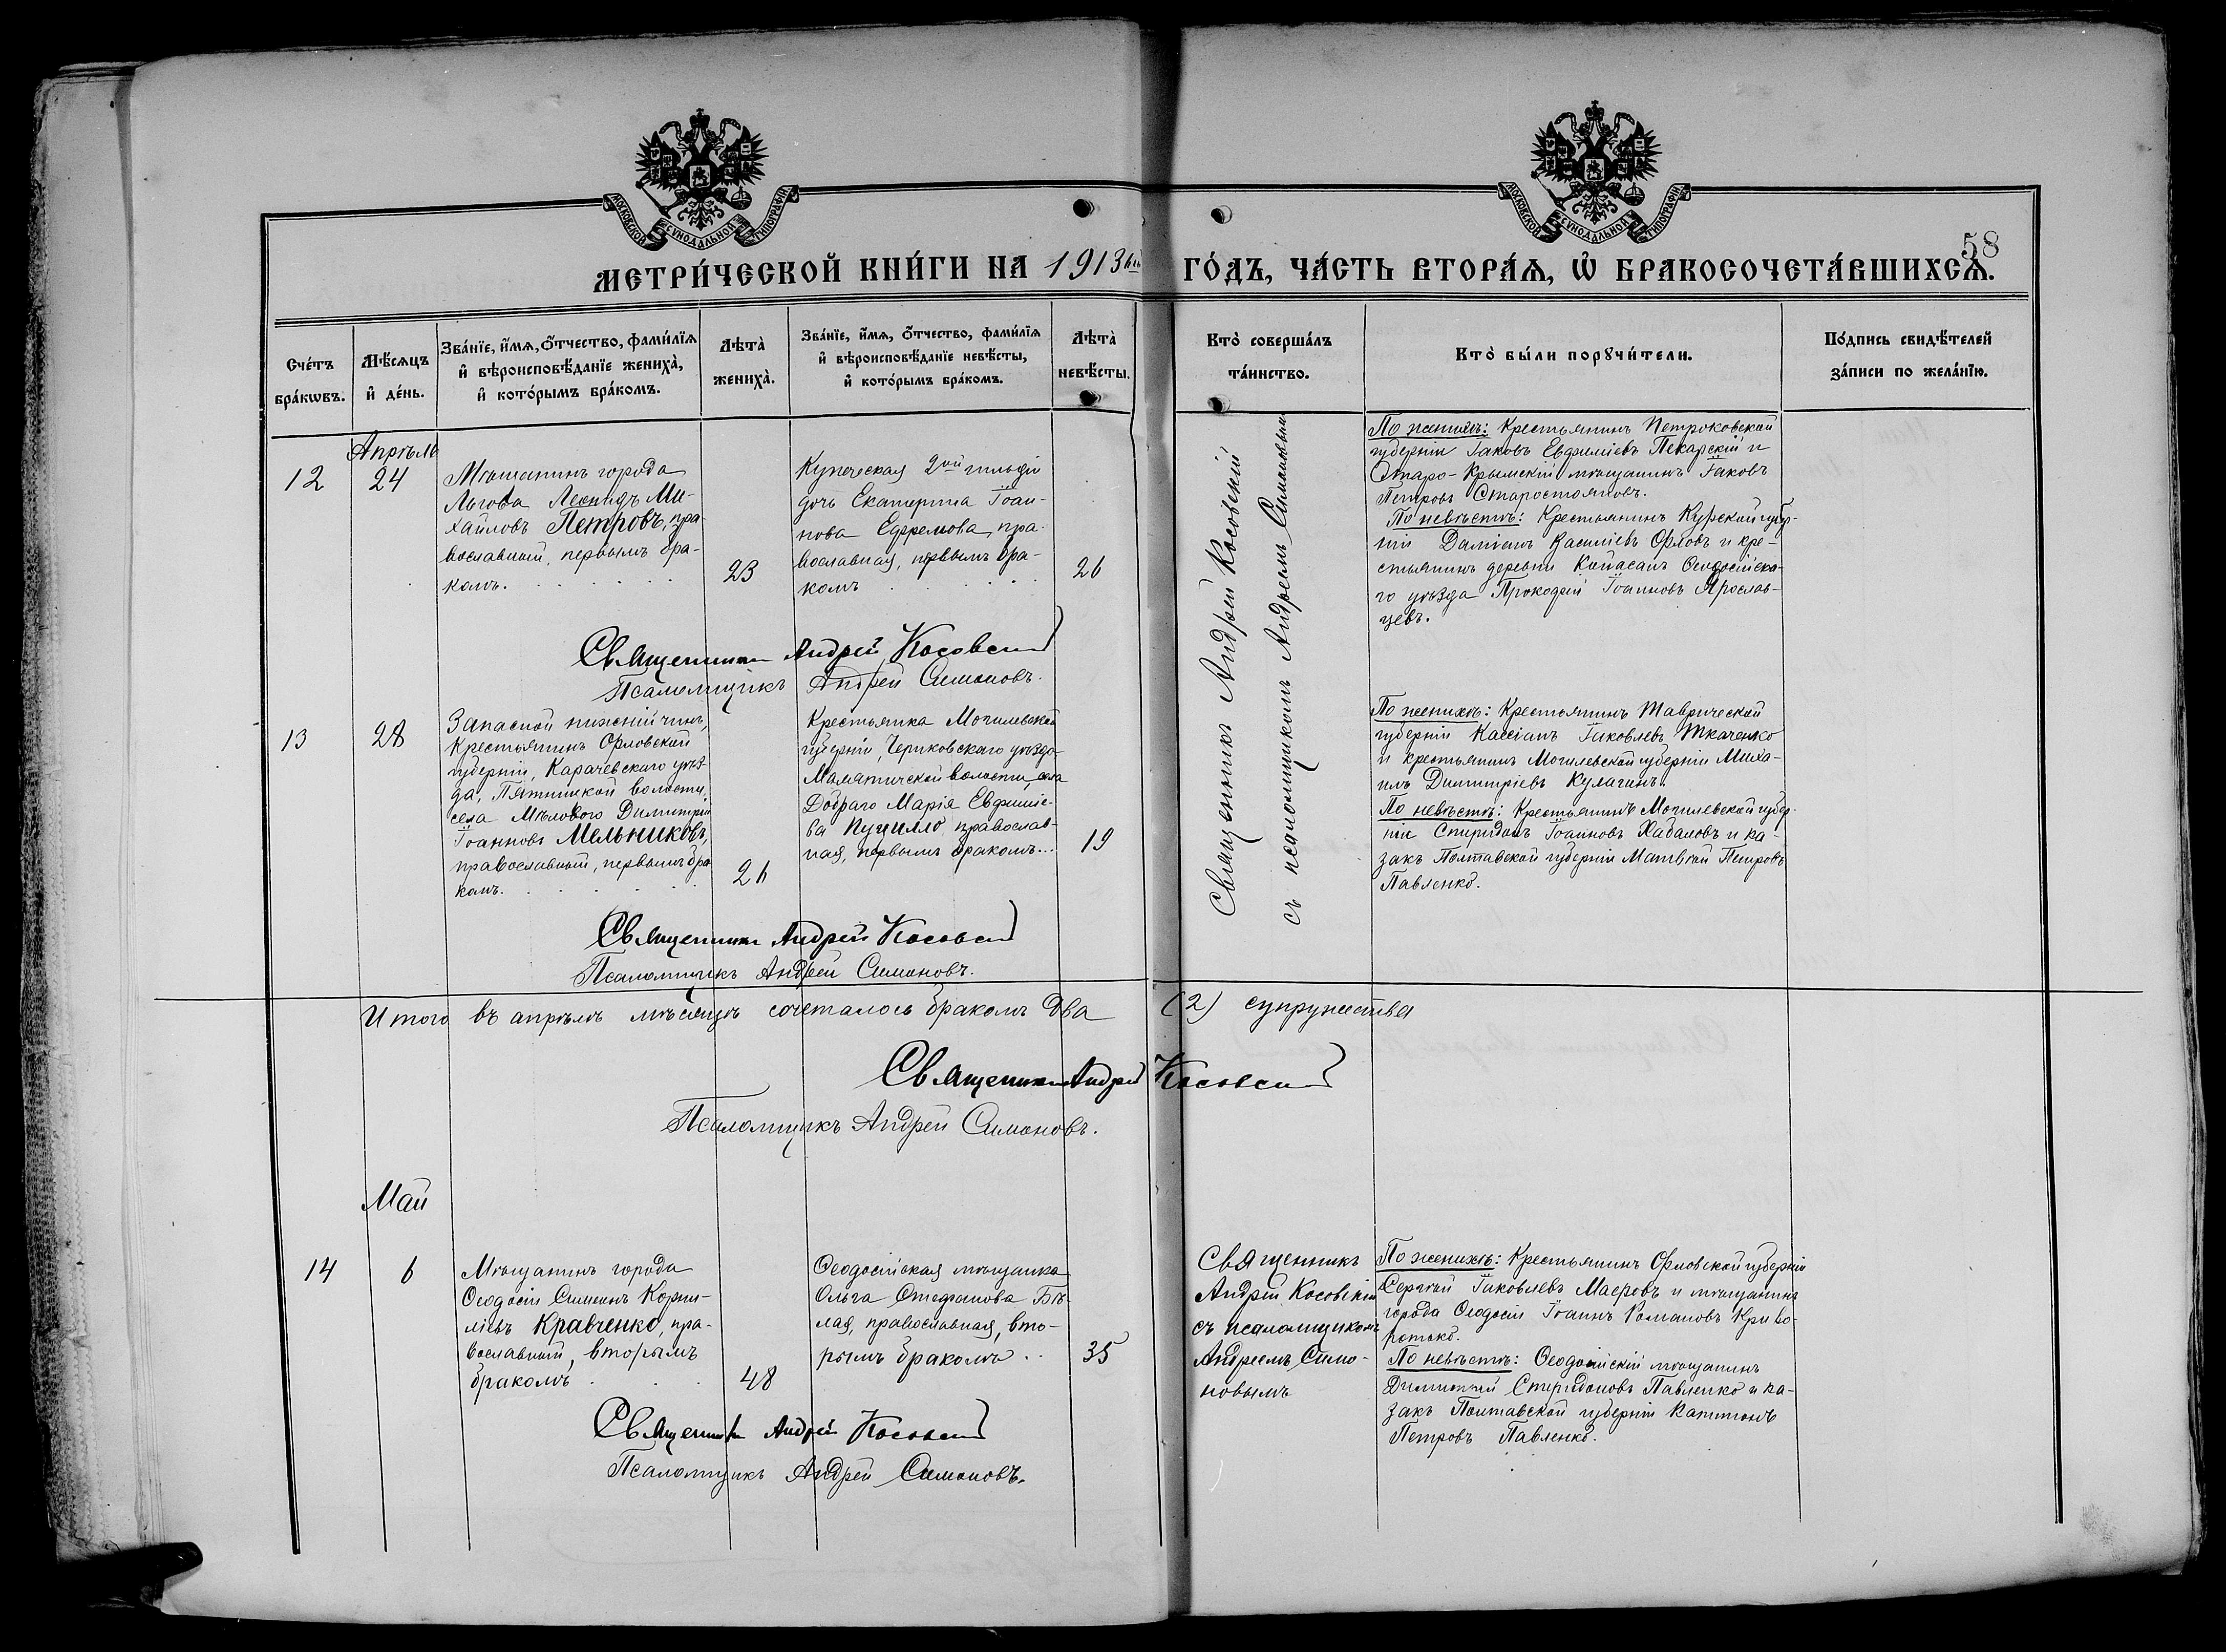 МОСКОВСКОЙ СѴНОДАЛЬНОЙ ТИПОГРАФІИ
МОСКОВСКОЙ СѴНОДАЛЬНОЙ ТИПОГРАФІИ
58
МЕТРИ́ЧЕСКОЙ КНИ́ГИ НА 1913 ГО́ДЪ, ЧА́СТЬ ВТОРА́Я, Ѡ҆ БРАКОСОЧЕТА́ВШИХСѦ.
Сче́тъ бра́кѡвъ.
Мѣ́сѧцъ и҆ де́нь.
Зва́нїе, и҆́мѧ, ѻ҆́тчество, фами́лїѧ и҆ вѣроисповѣ́данїе жениха̀, и҆ кото́рымъ бра́комъ.
Лѣта̀ жениха̀.
Зва́нїе, и҆́мѧ, ѻ҆́тчество, фами́лїѧ и҆ вѣроисповѣ́данїе невѣ́сты, и҆ кото́рымъ бра́комъ.
Лѣта̀ невѣ́сты.
Кто̀ соверша́лъ та́инство.
Кто̀ бы́ли порꙋчи́тели.
По́дпись свидѣ́телей за́писи по жела́нїю.
Апрѣль
12
24
Мѣщанинъ города
Льгова Леонидъ Ми-
хайловъ Петровъ, пра-
вославный, первымъ бра-
комъ.
23
Купеческая 2ой гильдіи
дочь Екатерина Іоан-
нова Ефремова, пра-
вославная, первымъ бра-
комъ
26
Священникъ Андрей Косовскій
съ псаломщикомъ Андреемъ Симоновымъ
По женихѣ: Крестьянинъ Петроковской
губерніи Іаковъ Евфиміевъ Пекарскій и
Старо-Крымскій мѣщанинъ Іаковъ
Петровъ Старостоятовъ.
По невѣстѣ: Крестьянинъ Курской губер-
ніи Даміанъ Василіевъ Орловъ и кре-
стьянинъ деревни Койасанъ Ѳеодосійска-
го уѣзда Прокофій Іоанновъ Ярослав-
цевъ.
Священникъ Андрей Косовскій
Псаломщикъ Андрей Симоновъ.
13
28
Запасной нижній чинъ,
крестьянинъ Орловской
губерніи, Карачевскаго уѣз-
да, Пятницкой волости,
села Мѣлового Димитрій
Іоанновъ Мельниковъ,
православный, первымъ бра-
комъ.
26
Крестьянка Могилевской
губерніи, Чериковскаго уѣзда
Малятичской волости, села
Добраго Марія Евфиміе-
ва Куцилло, православ-
ная, первымъ бракомъ...
19
По женихѣ: Крестьянинъ Таврической
губерніи Кассіанъ Іаковлевъ Ткаченко
и крестьянинъ Могилевской губерніи Миха-
илъ Димитріевъ Кулагинъ.
По невѣстѣ: Крестьянинъ Могилевской губер-
ніи Спиридонъ Іоанновъ Хабаловъ и ка-
закъ Полтавской губерніи Матвѣй Петровъ
Павленко.
Священникъ Андрей Косовскій
Псаломщикъ Андрей Симоновъ.
Итого въ апрѣлѣ мѣсяцѣ сочеталось бракомъ два (2) супружества
Священникъ Андрей Косовскій
Псаломщикъ Андрей Симоновъ.
Май
14
6
Мѣщанинъ города
Ѳеодосіи Симеонъ Корни-
ліевъ Кравченко, пра-
вославный, вторымъ
бракомъ
48
Ѳеодосійская мѣщанка
Ольга Стефанова Бѣ-
лая, православная, вто-
рымъ бракомъ
35
Священникъ
Андрей Косовскій
съ псаломщикомъ
Андреемъ Симо-
новымъ
По женихѣ: Крестьянинъ Орловской губерніи
Сергѣй Іаковлевъ Маеровъ и мѣщанинъ
города Ѳеодосіи Іоаннъ Романовъ Криво-
ротько.
По невѣстѣ: Ѳеодосійскій мѣщанинъ
Димитрій Спиридоновъ Павленко и ка-
закъ Полтавской губерніи Капитонъ
Петровъ Павленко.
Священникъ Андрей Косовскій
Псаломщикъ Андрей Симоновъ.